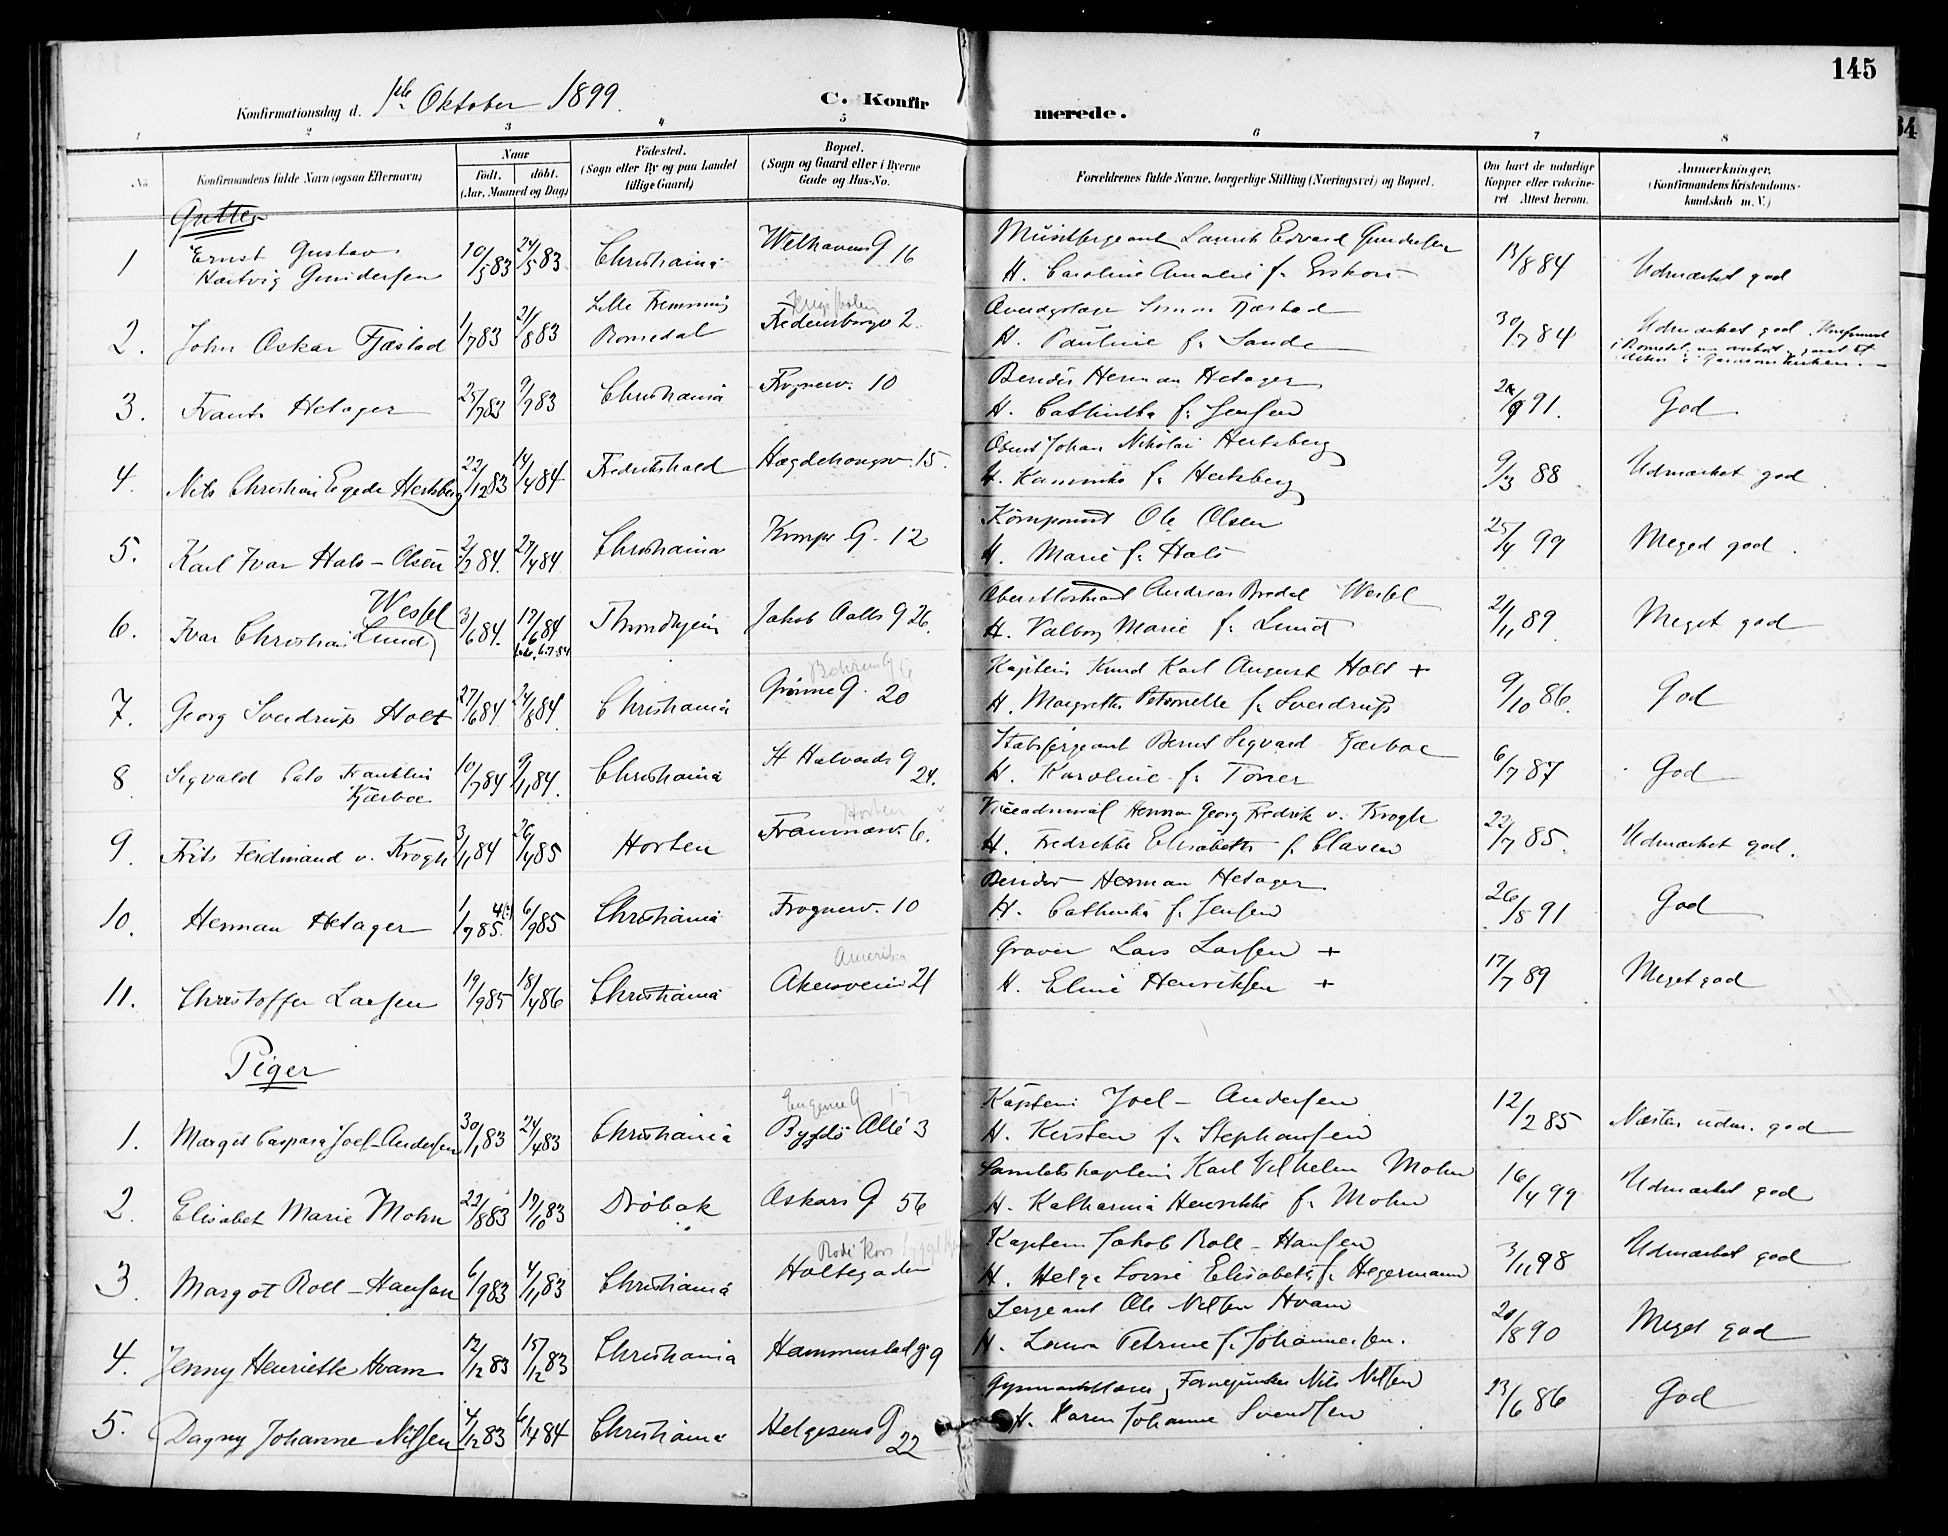 145
Konfirmationsdag d. 1ste Oktober 1899.
C. Konfirmerede.
1 2 3 4 5 6 7 8
No.
Konfirmandens fulde Navn (ogsaa Efternavn)
Naar
födt. döbt.
(Aar, Maaned og Dag)
Födested.
(Sogn eller By og paa Landet
tillige Gaard)
Bopæl.
(Sogn og Gaard eller i Byerne
Gade og Hus-No.
Forældrenes fulde Navne, borgerlige Stilling (Næringsvei) og Bopæl.
Om havt de naturlige
Kopper eller vakcine-
ret. Attest herom.
Anmærkninger.
(Konfirmandens Kristendoms-
kundskab m. V.)
Gutter
1 Ernst Gustav
Hartvig Gundersen 10/5 83 24/5 83 Christiania Welhavens G 16
Musiksergeant Laurits Edvard Gundersen
H. Caroline Amalie f. 13/8 84 Udmærket god
2. John Oskar Fjæstad 1/7 83 21/8 83 Lille Fremming
Romedal Fredensborgv 2.
Simon Fjæstad
H. Pauline f. Sande 30/7 84 Udmærket god. Konfirmeret
i Romedal
3. Frants Hetager 25/7 83 9/9 83 Christiania Frognerv. 10
Herman Hetager
H. Cathinka f. Jensen 91. God
4. Nils Christian Egede Hertzberg 22/12 83 14/4 84 Fredrikshald Hægdehougsv. 15.
Oberst Johan Nikolai Hertzberg
H. f. Hertzberg 9/3 88 Udmærket god.
5. Karl Ivar Hals-Olsen 2/2 84. 27/4 84 Christiania G. 12
Ole Olsen
H. Marie f. Hals 25/4 99 Meged god.
6. Ivar Christian Lund Wessel 3/6 84. 17/6 84 Throndhjem Jakob Aalls G 26.
Oberstløitnant Andreas Bredal Wessel
H. Valborg Marie f. Lund 21/11 89 Meget god
7. Georg Sverdrup Holt 27/6 84 24/8 84 Christiania Grønne G. 20
Kaptein Knud Karl August Holt +
H. Margrethe Petronelle f. Sverdrup 9/10 86. God
8 Sigvald Cato Franklin
Kjærboe 10/7 84 9/11 84. Christiania St Halvards G 24.
Stabssergeant Bernt Sigvard Kjærboe
H. Karoline f. 6/7 87 God
9. Frits Ferdinand v. Krogh 3/11 84 26/4 85 Horten Horten
Framnæsv. 6.
Viceadmiral Herman Georg Fredrik v. Krogh
H. Fredrikke Elisabeth f. Clasen 22/7 85. Udmærket god.
10. Herman Hetager 1/7 85. 4(?) 6/9 85 Christiania Frognerv. 10
Herman Hetager
H. Cathinka f. Jensen 26/8 91 God
11. Christoffer Larsen 19/9 85 18/4 86 Christiania Amerika
Akersveien 21
Graver Lars Larsen +
H. Eline Henriksen + 17/7 89 Meget god
Piger
1. Margit Caspara Joel-Andersen 30/1 83 24/4 83 Christiania Eugenie G 12
Bygdø Allé 3
Kaptein Joel-Andersen
H. Kirsten f. Stephansen 12/2 85 Næsten udm. god
2. Elisabet Marie Mohn 22/8 83 17/10 83 Drøbak Oskars G 56
Karl Vilhelm Mohn
H. Katharina Henrikke f. Mohn 16/4 99 Udmærket god
3. Margot Roll-Hansen 6/9 83 4/11 83 Christiania Røde Kors
Holtegaden
Kaptein Jakob Roll-Hansen
H. Helga Lovise Elisabeth f. Hegermann 3/11 98 Udmærket god
4. Jenny Henriette Hvam 12/12 83 15/12 83 Christiania Hammerstad g. 9
Sergeant Ole Nilsen Hvam
H. Laura Petrine f. Johannessen. 20/8 90 Meget god
5. Dagny Johanne Nilsen 4/12 83 6/4 84 Christiania Helgesens G 22
Nils Nilsen
H. Karen Johanne Svendsen 23/6 86 God